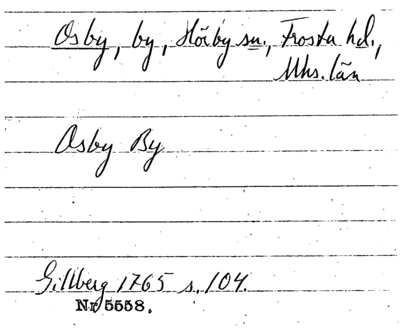 Osby, by, Hörby sn., Frosta hd.,
Mhs. län
Osby By
Gillberg 1765 s. 104.
Nr 5558.